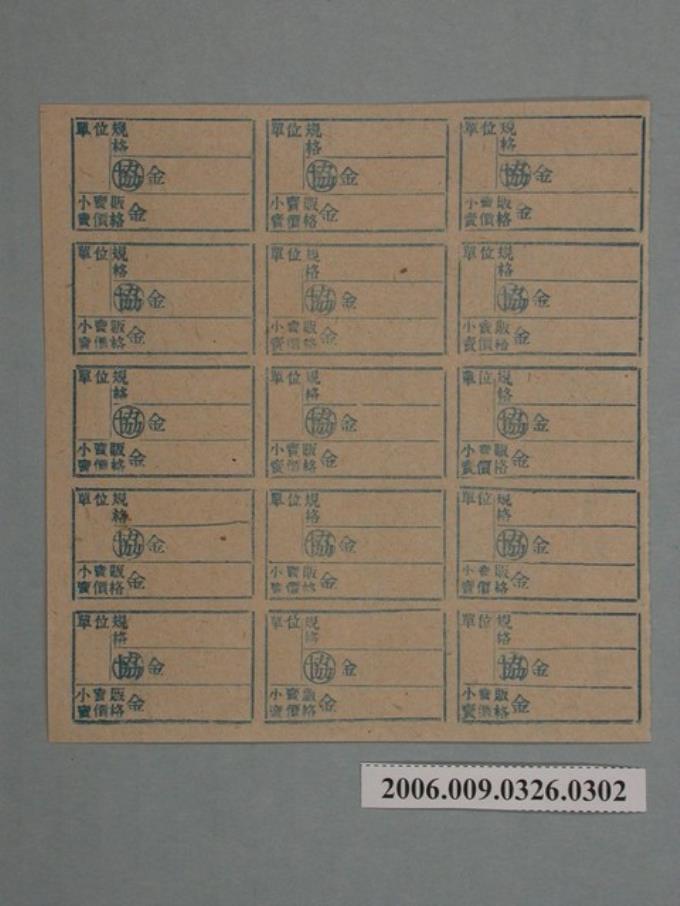 單位規 單位規 單位規
格 格 格
協 金 協 金 協 金
小賣販 金 小賣販 金 小賣販 金
賣價格 賣價格 賣價格
單位規 單位規 單位規
格 格 格
協 金 協 金 協 金
小賣販 金 小賣販 金 小賣販 金
賣價格 賣價格 賣價格
單位規 單位規 單位規
格 格 格
協 金 協 金 協 金
小賣販 金 小賣販 金 小賣販 金
賣價格 賣價格 賣價格
單位規 單位規 單位規
格 格 格
協 金 協 金 協 金
小賣販 金 小賣販 金 小賣販 金
賣價格 賣價格 賣價格
單位規 單位規 單位規
格 格 格
協 金 協 金 協 金
小賣販 金 小賣販 金 小賣販 金
賣價格 賣價格 賣價格
2006.009.0326.0302